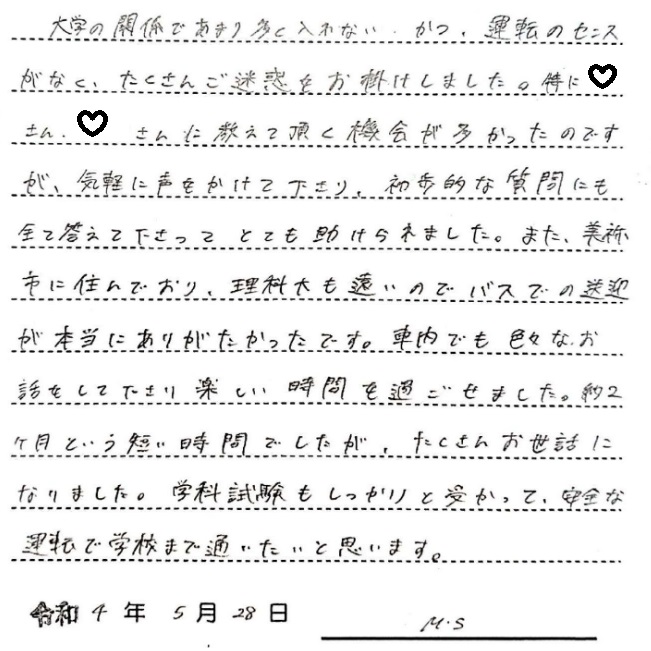 大学の関係であまり多く入れない、かつ、運転のセンス
がなく、たくさんご迷惑をお掛けしました。特に♡
さん、♡さんに教えて頂く機会が多かったのです
が、気軽に声をかけて下さり、初歩的な質問にも
全て答えて下さってとても助けられました。また、美祢
市に住んでおり、理科大も遠いのでバスでの送迎
が本当にありがたかったです。車内でも色々なお
話をして下さり楽しい時間を過ごせました。約2
ヶ月という短い時間でしたが、たくさんお世話に
なりました。学科試験もしっかりと受かって、安全な
運転で学校まで通いたいと思います。
令和4年5月28日
M.S